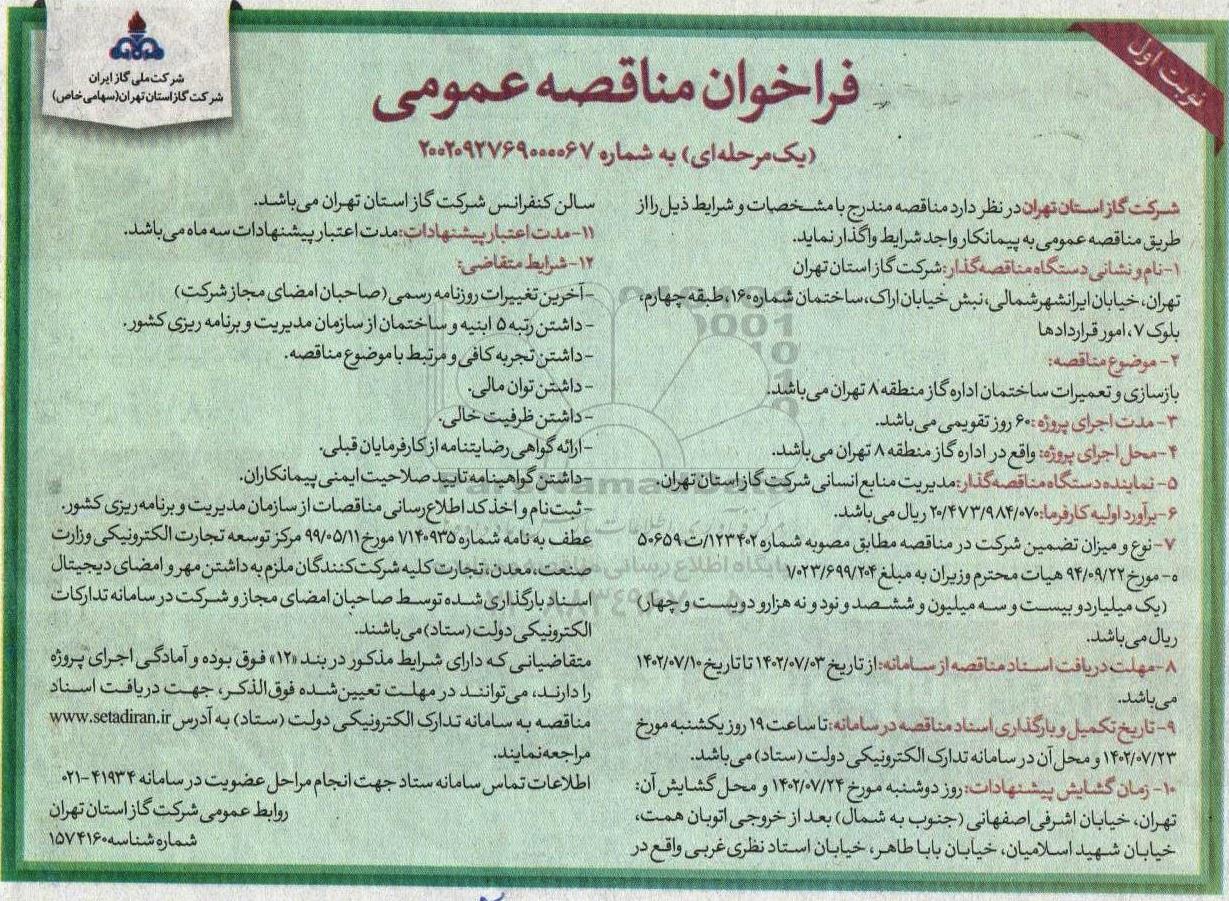 شرکت ملی گاز ایران
شرکت گاز استان تهران (سهامی خاص)
نوبت اول
فراخوان مناقصه عمومی
(یک مرحله‌ای) به شماره ۲۰۰۲۰۹۲۷۶۹۰۰۰۰۶۷
شرکت گاز استان تهران در نظر دارد مناقصه مندرج با مشخصات و شرایط ذیل را از
طریق مناقصه عمومی به پیمانکار واجد شرایط واگذار نماید.
۱- نام و نشانی دستگاه مناقصه‌گذار: شرکت گاز استان تهران
تهران، خیابان ایرانشهر شمالی، نبش خیابان اراک، ساختمان شماره ۱۶۰، طبقه چهارم،
بلوک ۷، امور قراردادها
۲- موضوع مناقصه:
بازسازی و تعمیرات ساختمان اداره گاز منطقه ۸ تهران می‌باشد.
۳- مدت اجرای پروژه: ۶۰ روز تقویمی می‌باشد.
۴- محل اجرای پروژه: واقع در اداره گاز منطقه ۸ تهران می‌باشد.
۵- نماینده دستگاه مناقصه‌گذار: مدیریت منابع انسانی شرکت گاز استان تهران.
۶- برآورد اولیه کارفرما: ۲۰/۴۷۳/۹۸۴/۰۷۰ ریال می‌باشد.
۷- نوع و میزان تضمین شرکت در مناقصه مطابق مصوبه شماره ۱۲۳۴۰۲/ت ۵۰۶۵۹
ه- مورخ ۹۴/۰۹/۲۲ هیات محترم وزیران به مبلغ ۱/۰۲۳/۶۹۹/۲۰۴
(یک میلیارد و بیست و سه میلیون و ششصد و نود و نه هزار و دویست و چهار)
ریال می‌باشد.
۸- مهلت دریافت اسناد مناقصه از سامانه: از تاریخ ۱۴۰۲/۰۷/۰۳ تا تاریخ ۱۴۰۲/۰۷/۱۰
می‌باشد.
۹- تاریخ تکمیل و بارگذاری اسناد مناقصه در سامانه: تا ساعت ۱۹ روز یکشنبه مورخ
۱۴۰۲/۰۷/۲۳ و محل آن در سامانه تدارک الکترونیکی دولت (ستاد) می‌باشد.
۱۰- زمان گشایش پیشنهادات: روز دوشنبه مورخ ۱۴۰۲/۰۷/۲۴ و محل گشایش آن:
تهران، خیابان اشرفی اصفهانی (جنوب به شمال) بعد از خروجی اتوبان همت،
خیابان شهید اسلامیان، خیابان بابا طاهر، خیابان استاد نظری غربی واقع در
سالن کنفرانس شرکت گاز استان تهران می‌باشد.
۱۱- مدت اعتبار پیشنهادات: مدت اعتبار پیشنهادات سه ماه می‌باشد.
۱۲- شرایط متقاضی:
- آخرین تغییرات روزنامه رسمی (صاحبان امضای مجاز شرکت)
- داشتن رتبه ۵ ابنیه و ساختمان از سازمان مدیریت و برنامه ریزی کشور.
- داشتن تجربه کافی و مرتبط با موضوع مناقصه.
- داشتن توان مالی.
- داشتن ظرفیت خالی.
- ارائه گواهی رضایتنامه از کارفرمایان قبلی.
- داشتن گواهینامه تایید صلاحیت ایمنی پیمانکاران.
- ثبت نام و اخذ کد اطلاع رسانی مناقصات از سازمان مدیریت و برنامه ریزی کشور.
عطف به نامه شماره ۱/۱۴۰۹۳۵ مورخ ۹۹/۰۵/۱۱ مرکز توسعه تجارت الکترونیکی وزارت
صنعت، معدن، تجارت کلیه شرکت‌کنندگان ملزم به داشتن مهر و امضای دیجیتال
اسناد بارگذاری شده توسط صاحبان امضای مجاز و شرکت در سامانه تدارکات
الکترونیکی دولت (ستاد) می‌باشند.
متقاضیانی که دارای شرایط مذکور در بند «۱۲» فوق بوده و آمادگی اجرای پروژه
را دارند، می‌توانند در مهلت تعیین‌شده فوق‌الذکر، جهت دریافت اسناد
مناقصه به سامانه تدارک الکترونیکی دولت (ستاد) به آدرس www.setadiran.ir
مراجعه نمایند.
اطلاعات تماس سامانه ستاد جهت انجام مراحل عضویت در سامانه ۴۱۹۳۴-۰۲۱
روابط عمومی شرکت گاز استان تهران
شماره شناسه ۱۵۷۴۱۶۰